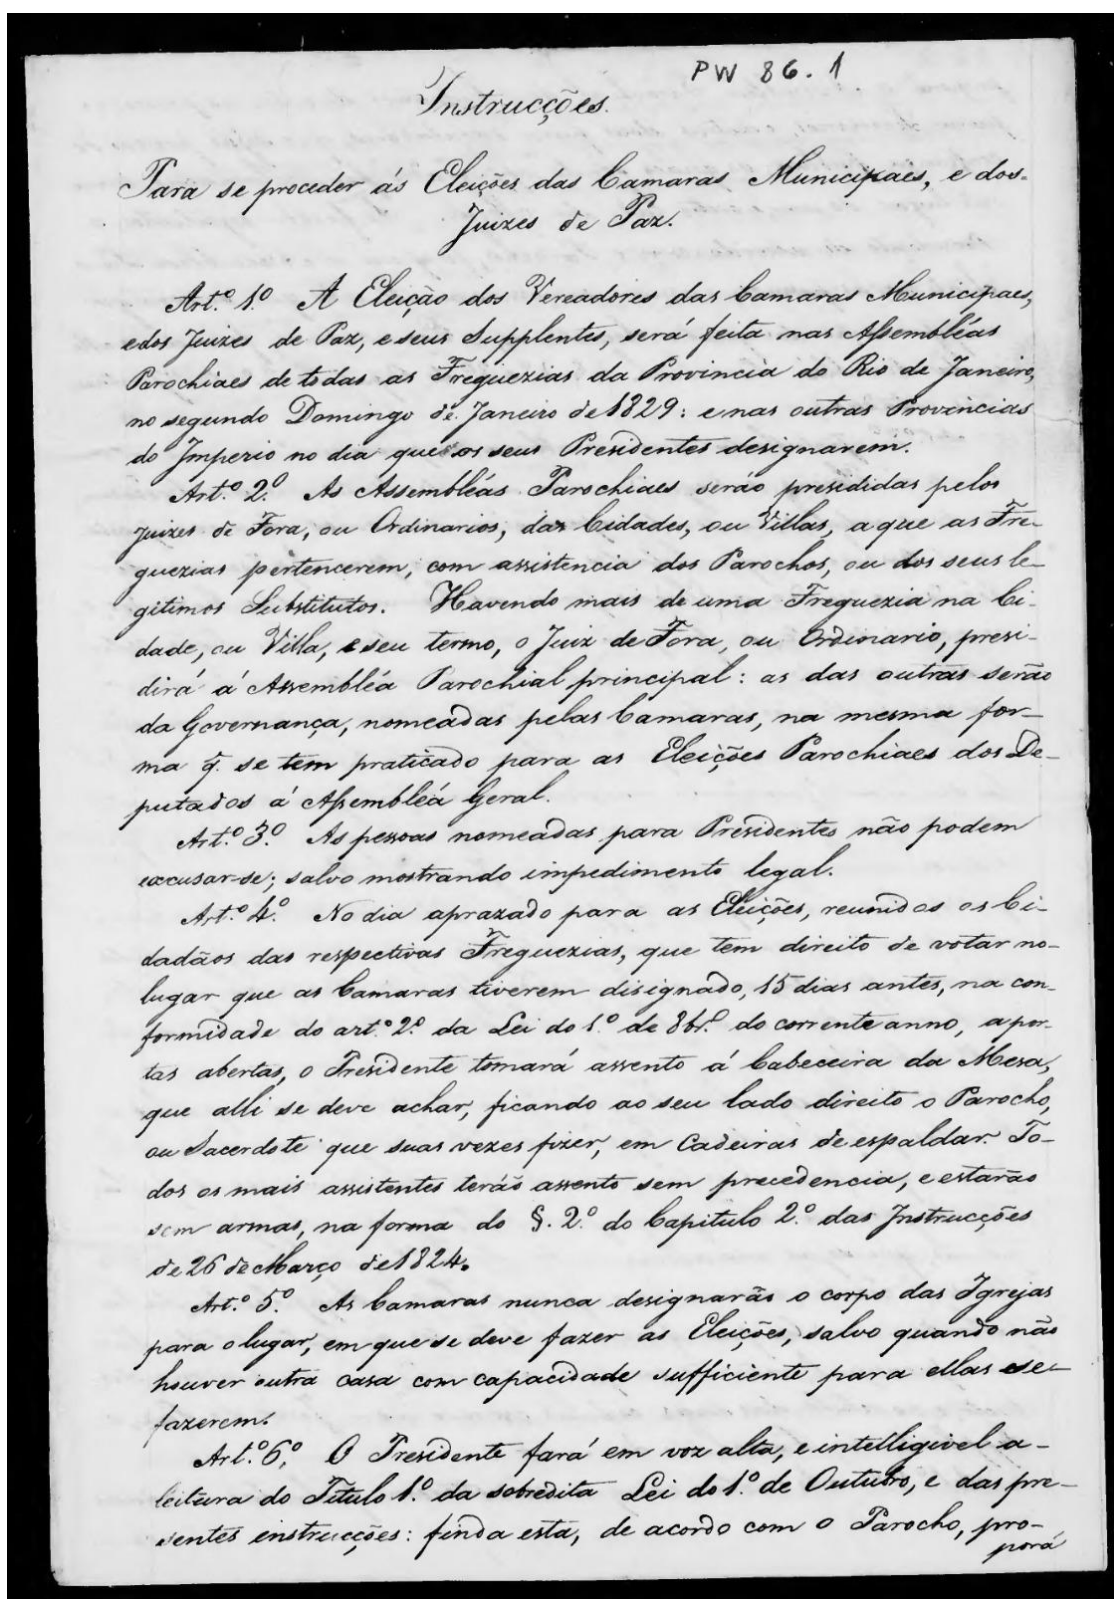 PW 86.1
Instrucções.
Para se proceder ás Eleições das Camaras Municipaes, e dos
Juizes de Paz.
Art.º 1.º A Eleição dos Vereadores das Camaras Municipaes,
e dos Juizes de Paz, e seus Supplentes, será feita nas Assembléas
Parochiaes de todas as Freguezias da Provincia do Rio de Janeiro,
no segundo Domingo de Janeiro de 1829: e nas outras Provincias
do Imperio no dia que os seus Presidentes designarem.
Art.º 2.º As Assembléas Parochiaes serão presididas pelos
Juizes de Fora, ou Ordinarios, das Cidades, ou Villas, a que as Fre-
guezias pertencerem, com assistencia dos Parochos, ou dos seus le-
gitimos Substitutos. Havendo mais de uma Freguezia na Ci-
dade, ou Villa, e seu termo, o Juiz de Fora, ou Ordinario, presi-
dirá á Assembléa Parochial principal: as das outras serão
da Governança, nomeadas pelas Camaras, na mesma for-
ma q̃. se tem praticado para as Eleições Parochiaes dos De-
putados á Assembléa Geral.
Art.º 3.º As pessoas nomeadas para Presidentes não podem
excusar-se; salvo mostrando impedimento legal.
Art.º 4.º No dia aprazado para as Eleições, reunidos os Ci-
dadãos das respectivas Freguezias, que tem direito de votar no
lugar que as Camaras tiverem disignado, 15 dias antes, na con-
formidade do art.º 2.º da Lei do 1.º de 8br.º do corrente anno, a por-
tas abertas, o Presidente tomará assento á Cabeceira da Mesa,
que alli se deve achar, ficando ao seu lado direito o Parocho,
ou Sacerdote que suas vezes fizer, em Cadeiras de espaldar. To-
dos os mais assistentes terão assento sem precedencia, e estarão
sem armas, na forma do §. 2.º do Capitulo 2.º das Instrucções
de 26 de Março de 1824.
Art.º 5.º As Camaras nunca designarão o corpo das Igrejas
para o lugar, em que se deve fazer as Eleições, salvo quando não
houver outra casa com capacidade sufficiente para ellas se
fazerem.
Art.º 6.º O Presidente fará em voz alta, e intelligivel a
leitura do Titulo 1.º da sobredita Lei do 1.º de Outubro, e das pre-
sentes instrucções: finda esta, de acordo com o Parocho, pro-
porá